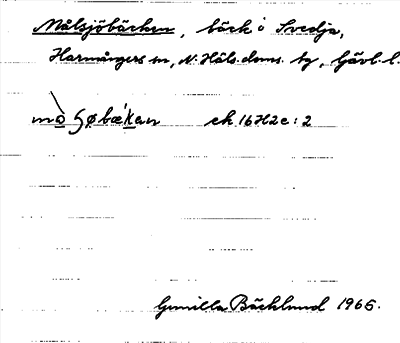 Målsjöbäcken, bäck i Svedja,
Harmångers sn, N. Häls. doms. tg, Gävl. l.
ek 16H2e:2
Gunilla Bäcklund 1966.